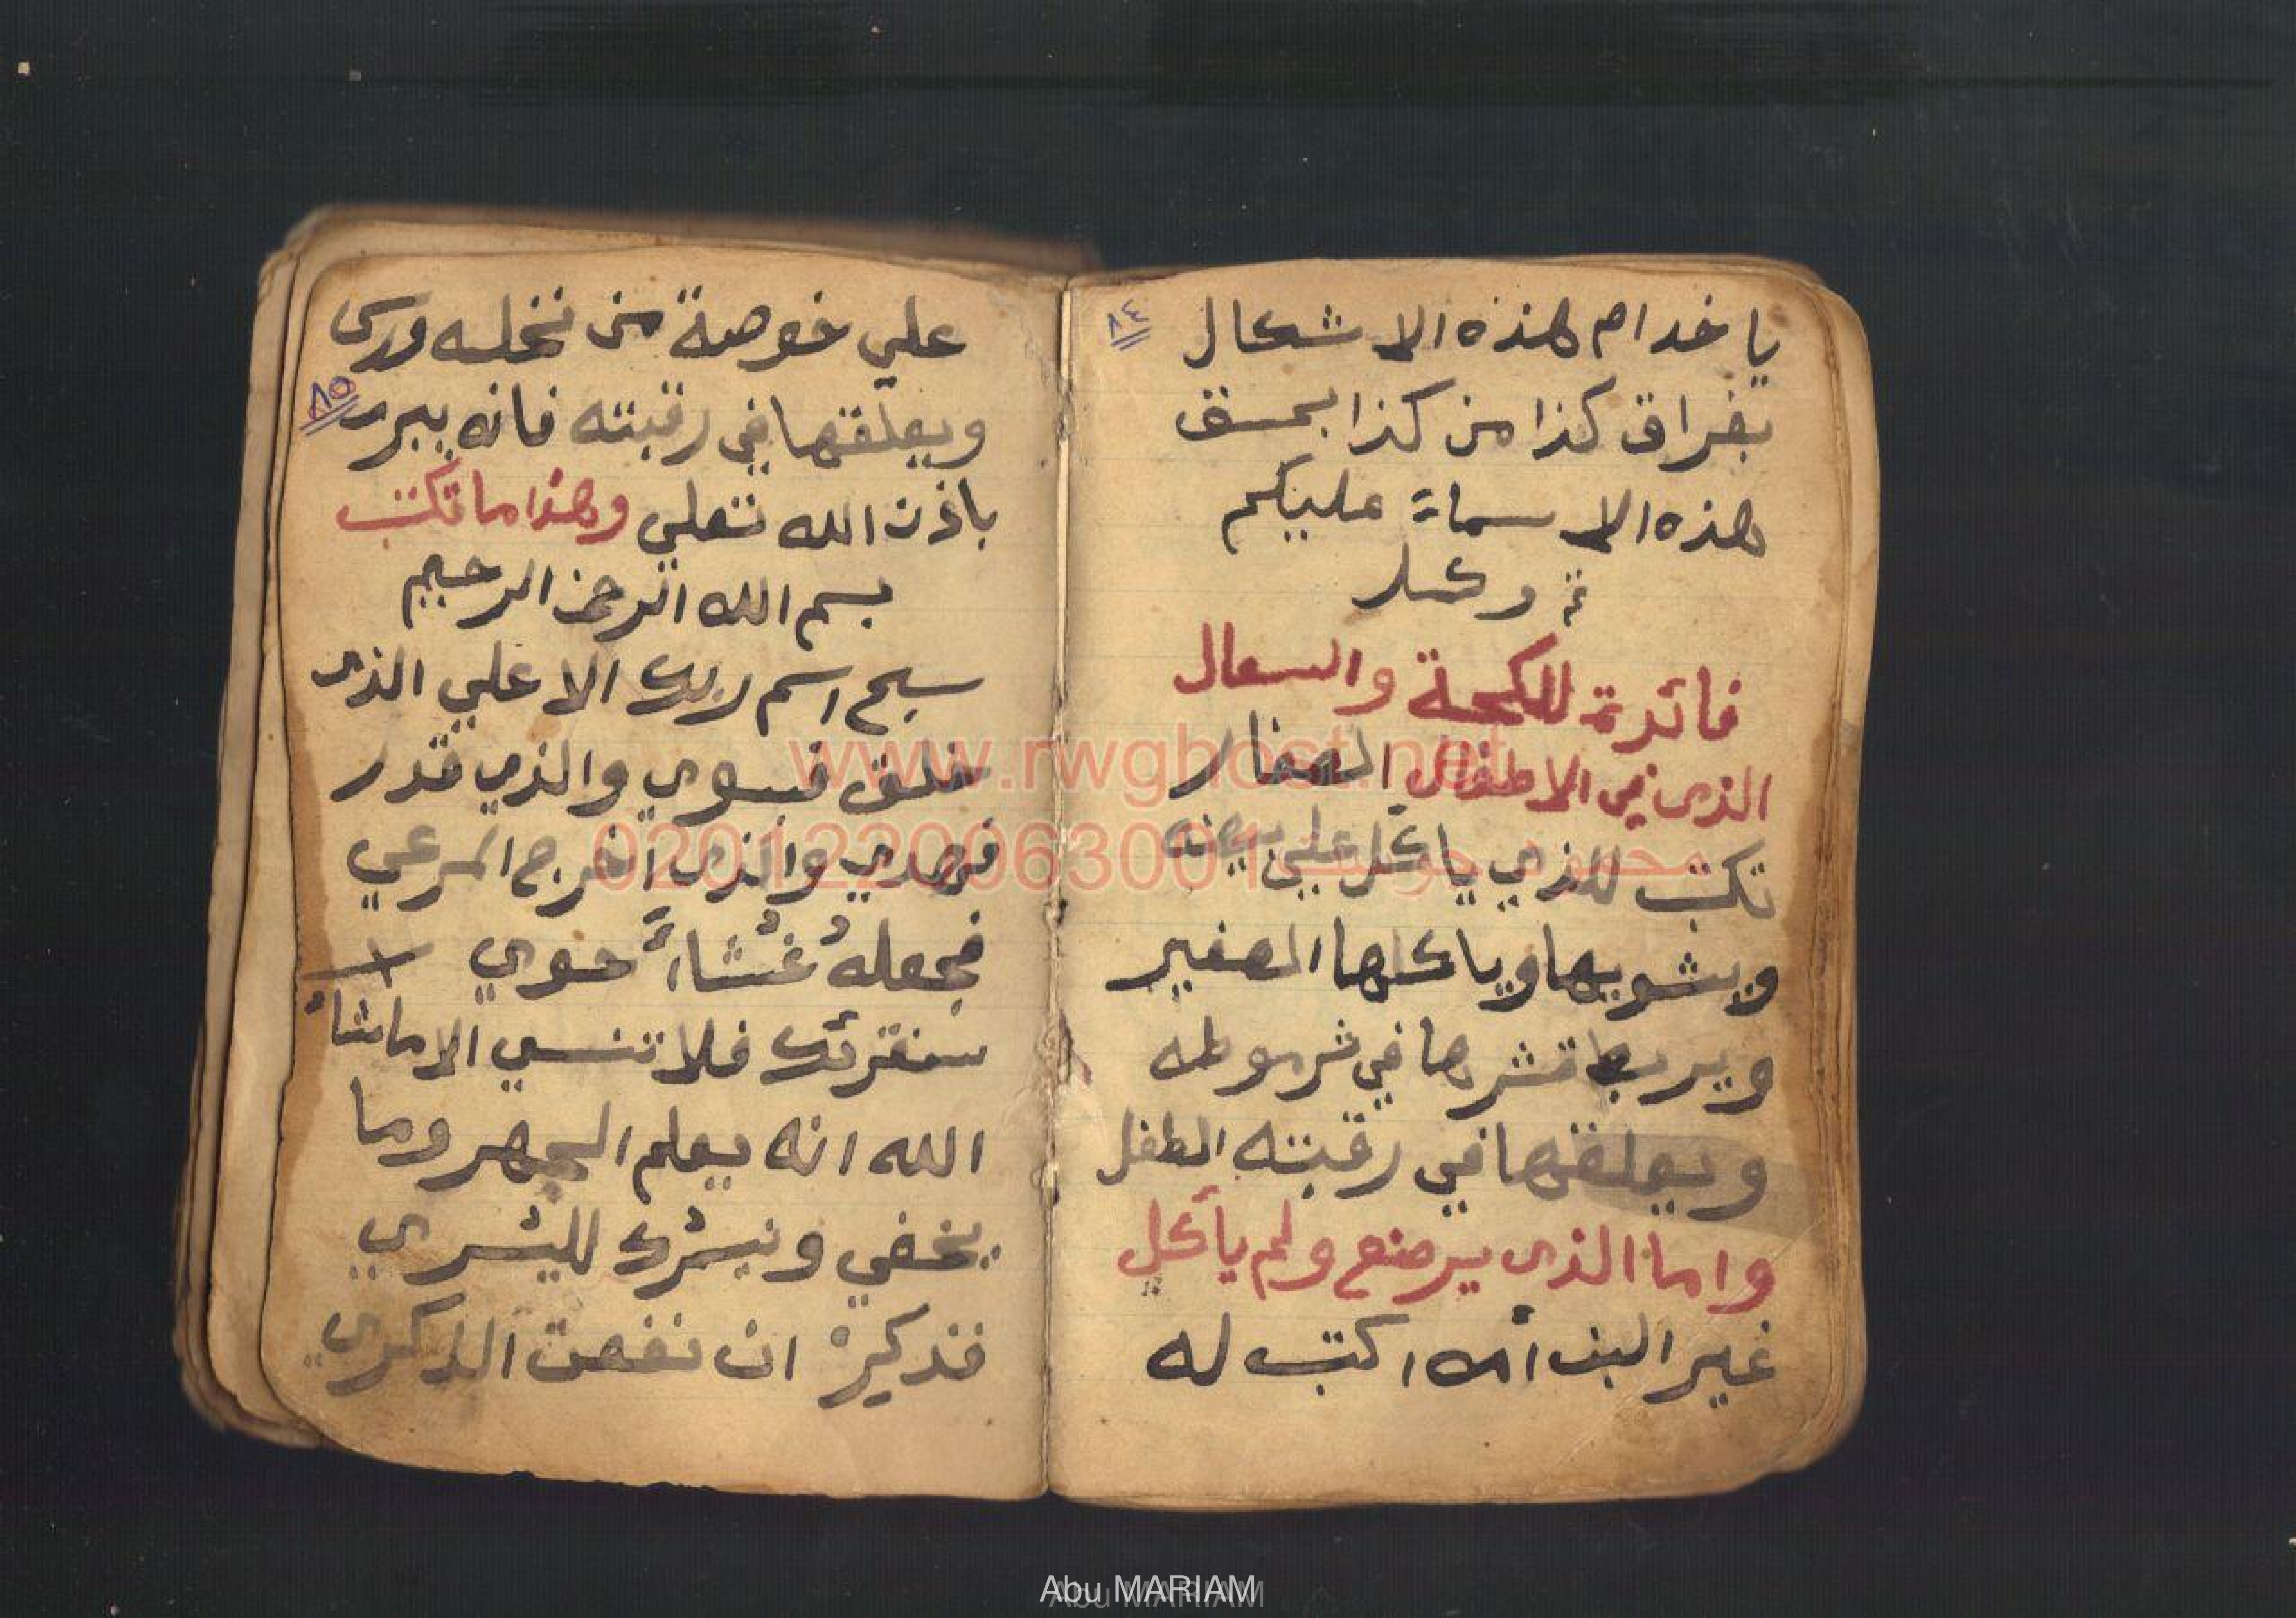 ٨٤
يا خدام هذه الاشكال
بفراق كذا من كذا بحق
هذه الاسماء عليكم
تم وكمل
فائدة للكحة والسعال
الذى في الاطفال الصغار
تكتب للذي ياكل على بيضه
ويشويها وياكلها الصغير
ويربط قشرها في شرموطه
ويعلقها في رقبته الطفل
واما الذى يرضع ولم يأكل
غير البن أمه اكتب له
٨٥
علي خوصة من نخله
ويعلقها في رقبته فانه يبرء
باذن الله تعلي وهذا ما تكتب
بسم الله الرحمن الرحيم
سبح اسم ربك الاعلي الذى
خلق فسوي والذي قدر
فهدي والذى اخرج المرعي
فجعله غثاءً حوي
سنقرئك فلا تنسي الا ما شاء
الله انه يعلم الجهر وما
يخفي ونيسرك لليسري
فذكر ان نفعت الذكري
www.rwghost.net
0201220063001
Abu MARIAM